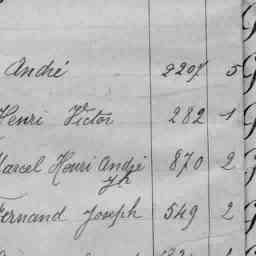 André 2207 5
Henri Victor 282 1
Marcel Henri André 870 2
Fernand Joseph 549 2